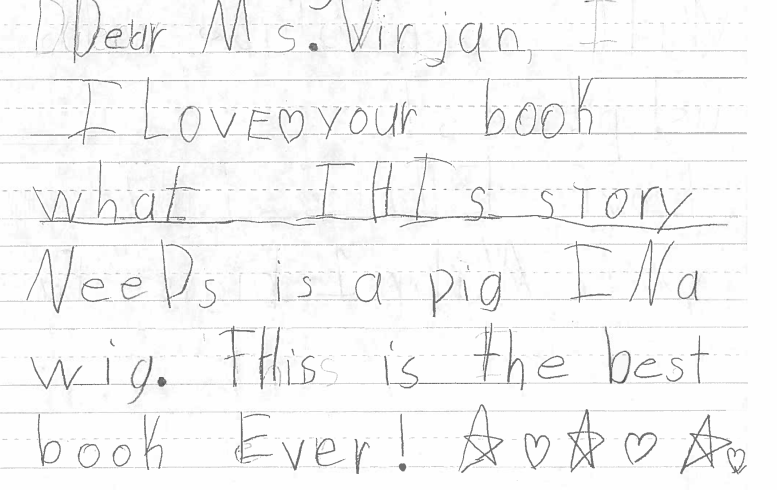 Dear Ms. Virjan, I
I LOVE♡your book
what THIs sTory
NeeDs is a pig INa
wig. THis is the best
book Ever! ☆♡☆♡☆♡